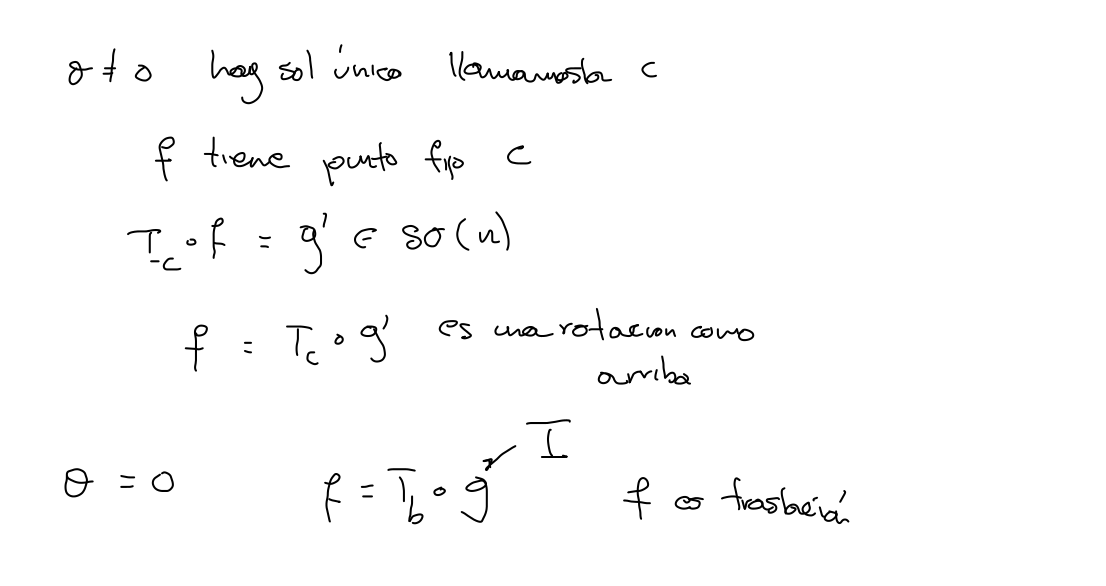 θ ≠ 0 hay sol único llamamosla c
f tiene punto fijo c
T_{-c} ∘ f = g' ∈ SO(n)
f = T_c ∘ g' es una rotacion como
arriba
I
θ = 0 f = T_b ∘ g f es traslación